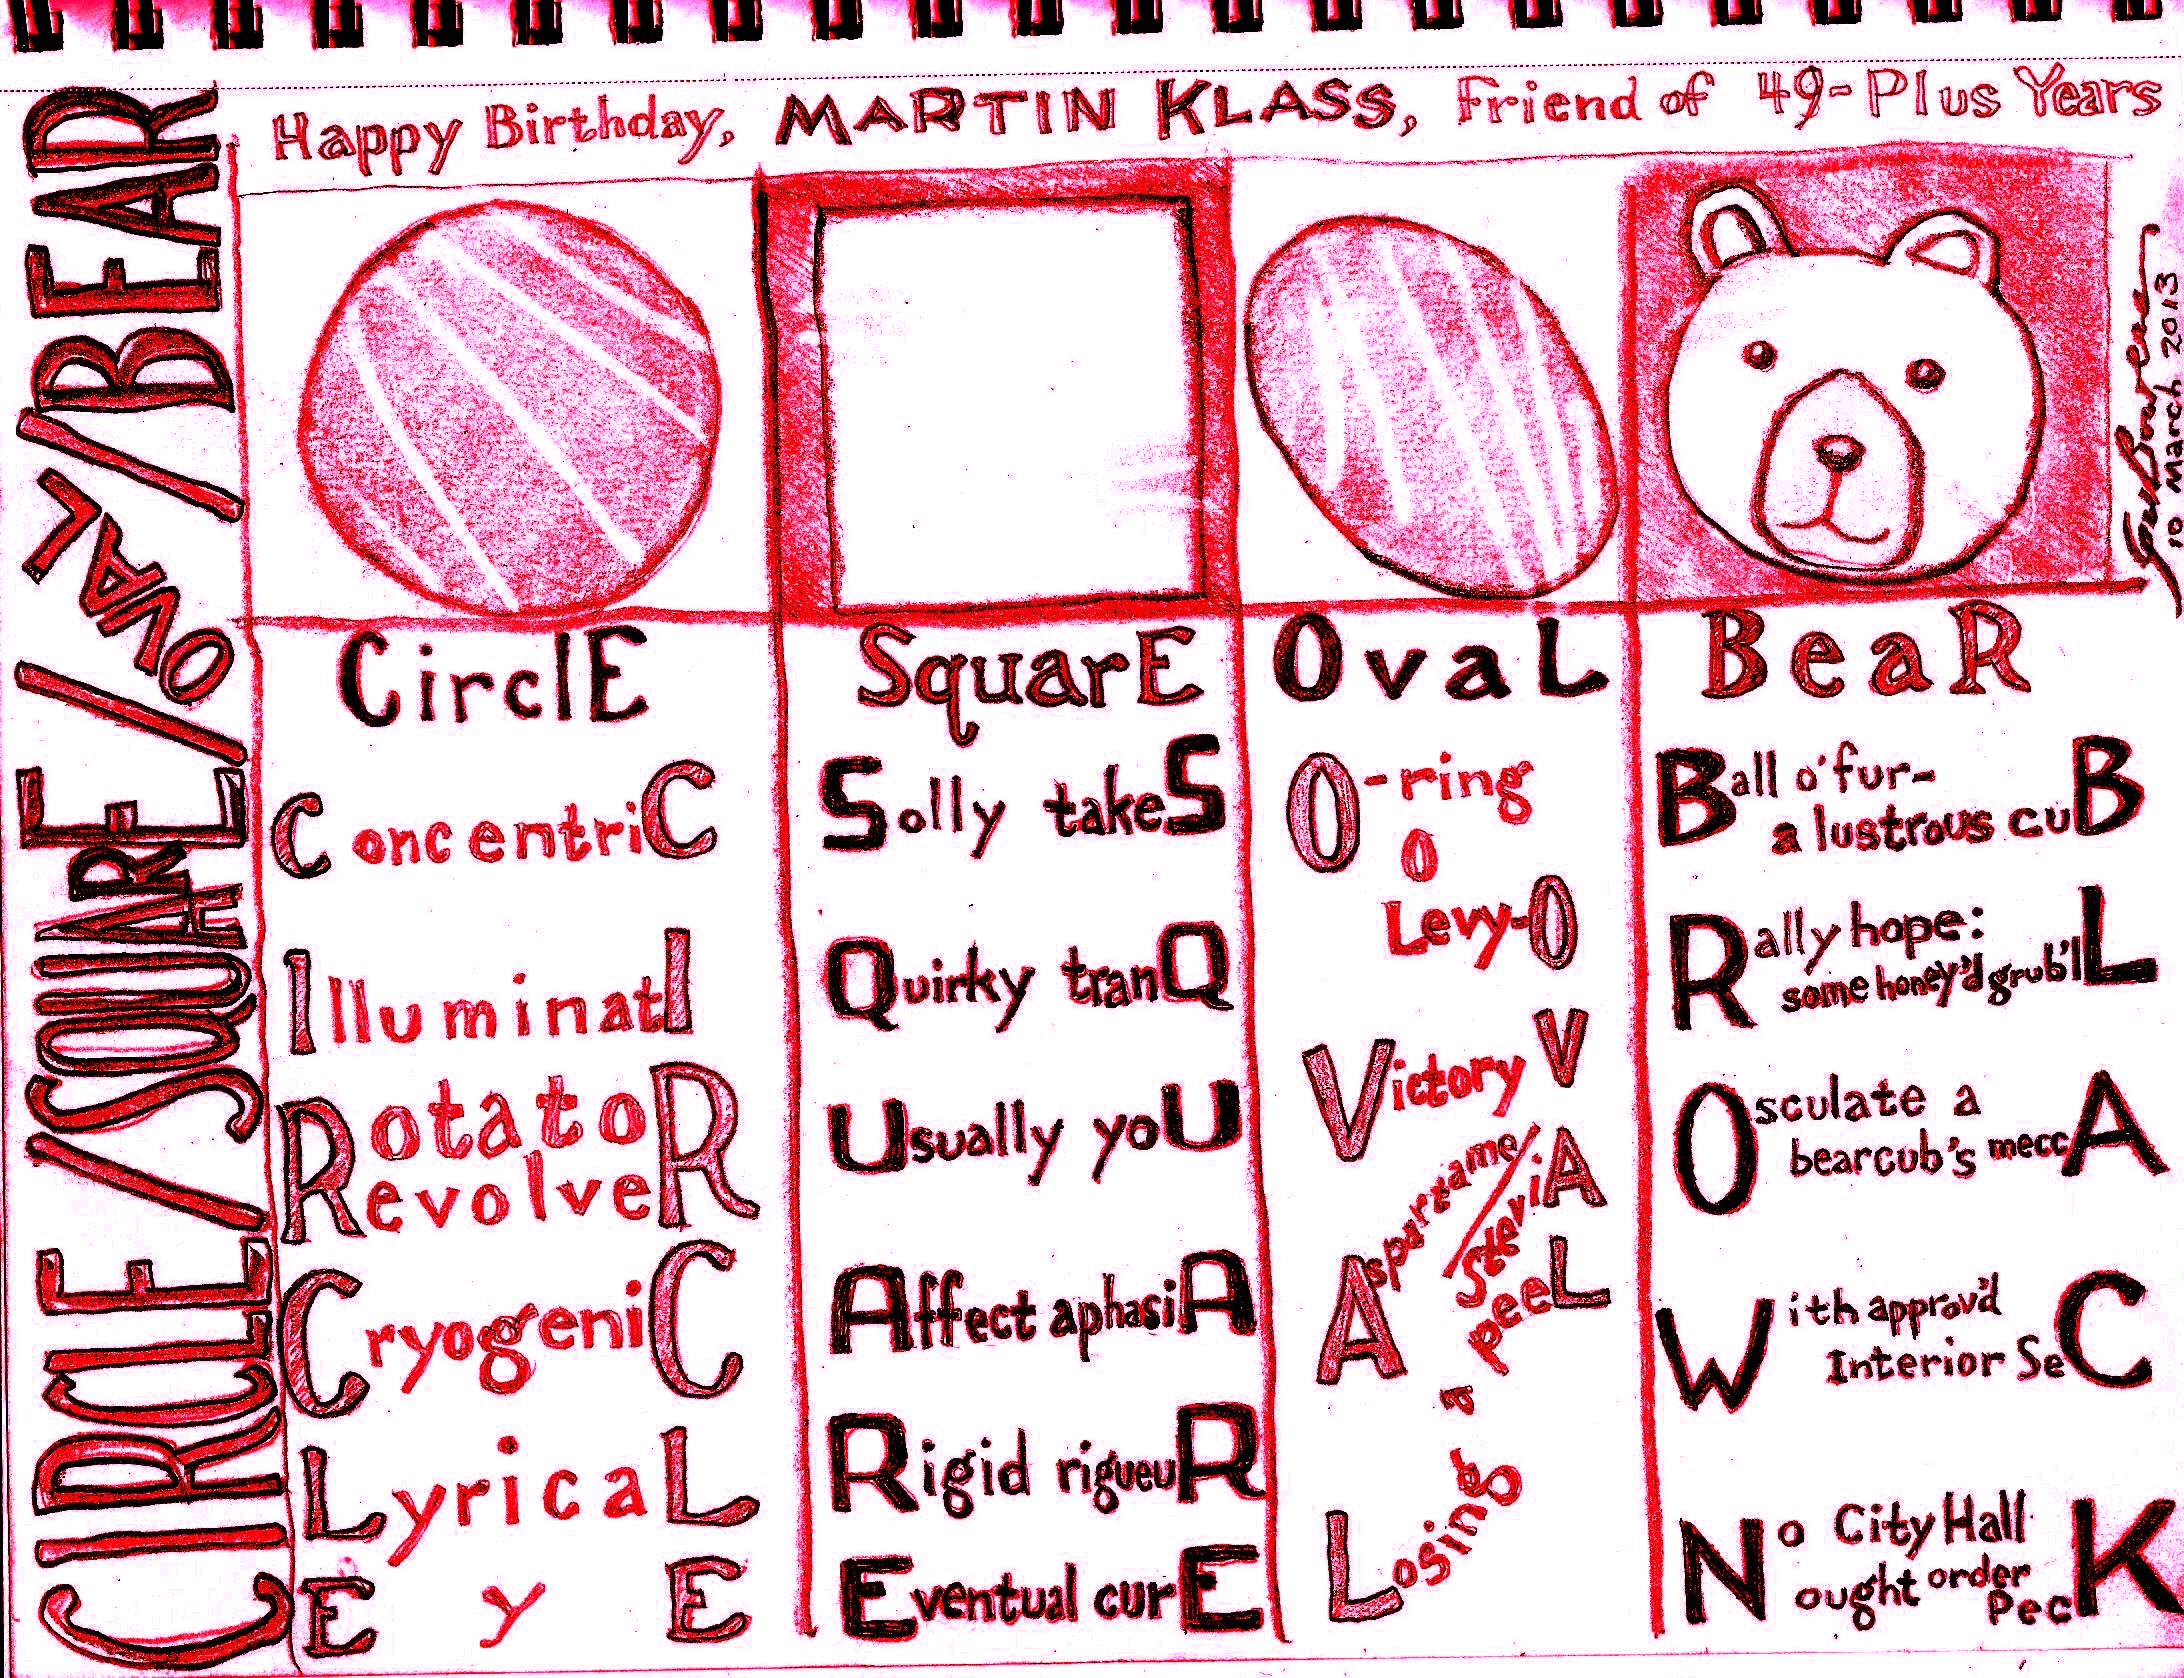 Happy Birthday, MARTIN KLASS, Friend of 49-Plus Years
CIRCLE/SQUARE/OVAL/BEAR
10 March 2013
CirclE
ConcentriC
IlluminatI
RotatoR
RevolveR
CryogeniC
LyricaL
EyE
SquarE
Solly takeS
Quirky tranQ
Usually yoU
Affect aphasiA
Rigid rigueuR
Eventual curE
OvaL
O-ring
O
Levy-O
Victory V
Aspargame/
SteviA
Losing a peeL
BeaR
Ball o'fur-
a lustrous cuB
Rally hope:
some honey'd grub'lL
Osculate a
bearcub's meccA
With approv'd
Interior SeC
No City Hall
ought order
PecK